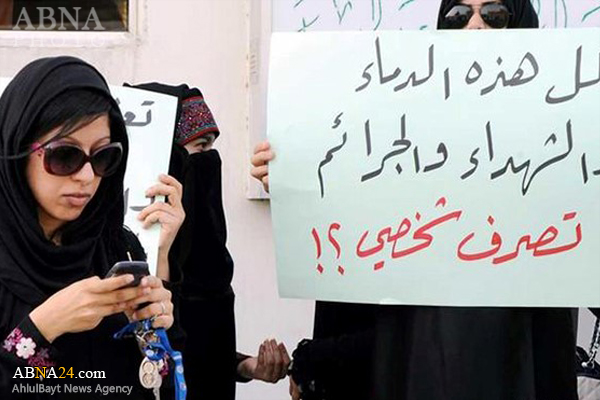 ABNA
لل هذه الدماء
الشهداء والجرائم
تصرف شخصي ؟!
ABNA24.com
AhlulBayt News Agency